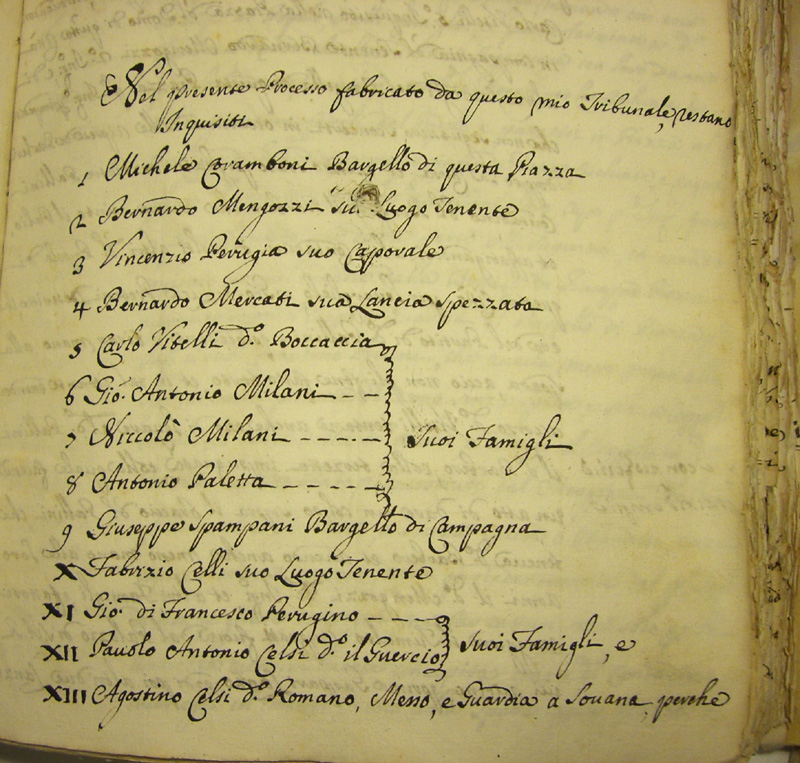 Nel presente Processo fabricato da questo mio Tribunale, restano
Inquisiti
1 Michele Gramboni Bargello di questa Piazza
2 Bernardo Mengozzi suo Luogo Tenente
3 Vincenzio Perugia suo Caporale
4 Bernardo Mercati sua Lancia spezzata
5 Carlo Vitelli d.º Boccaccia
6 Gio: Antonio Milani
7 Niccolò Milani - - - - - suoi Famigli
8 Antonio Paletta - - - - -
9 Giuseppe Spampani Bargello di Campagna
X Fabrizio Celli suo Luogo Tenente
XI Gio: di Francesco Perugino - - - -
XII Pauolo Antonio Celsi d.º il Guercio suoi Famigli, e
XIII Agostino Celsi d.º Romano, Messo, e Guardia a Souana perche